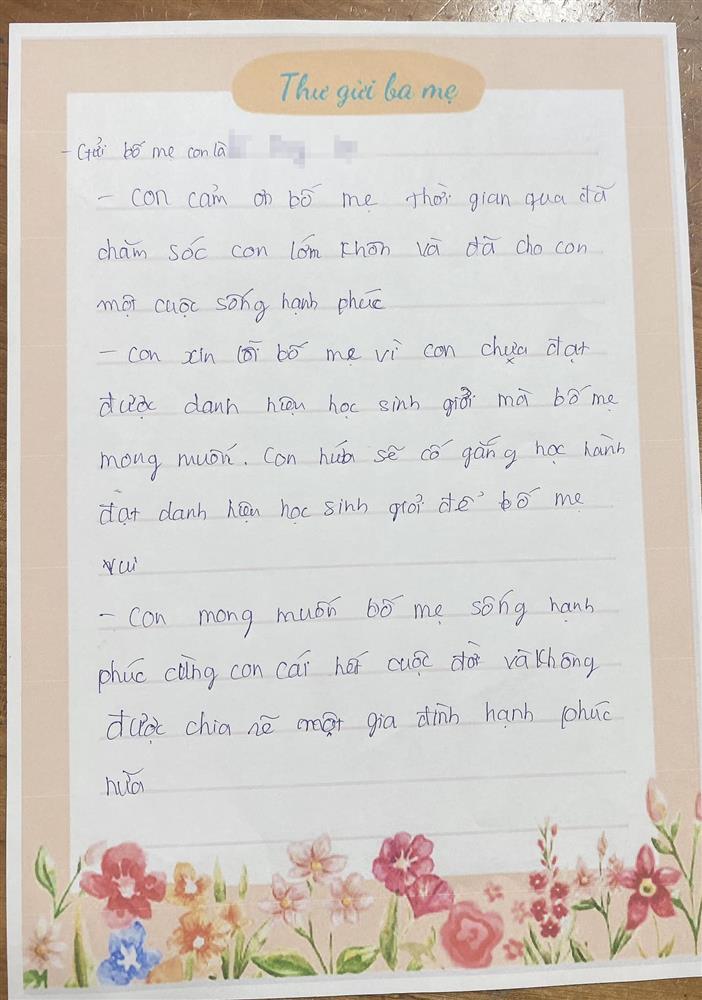 Thư gửi ba mẹ
- Gửi bố mẹ con là
- Con cảm ơn bố mẹ thời gian qua đã
chăm sóc con lớm khôn và đã cho con
một cuộc sống hạnh phúc
- Con xin lỗi bố mẹ vì con chưa đạt
được danh hiệu học sinh giỏi mà bố mẹ
mong muốn. Con hứa sẽ cố gắng học hành
đạt danh hiệu học sinh giỏi để bố mẹ
vui
- Con mong muốn bố mẹ sống hạnh
phúc cùng con cái hết cuộc đời và không
được chia rẽ một gia đình hạnh phúc
nữa